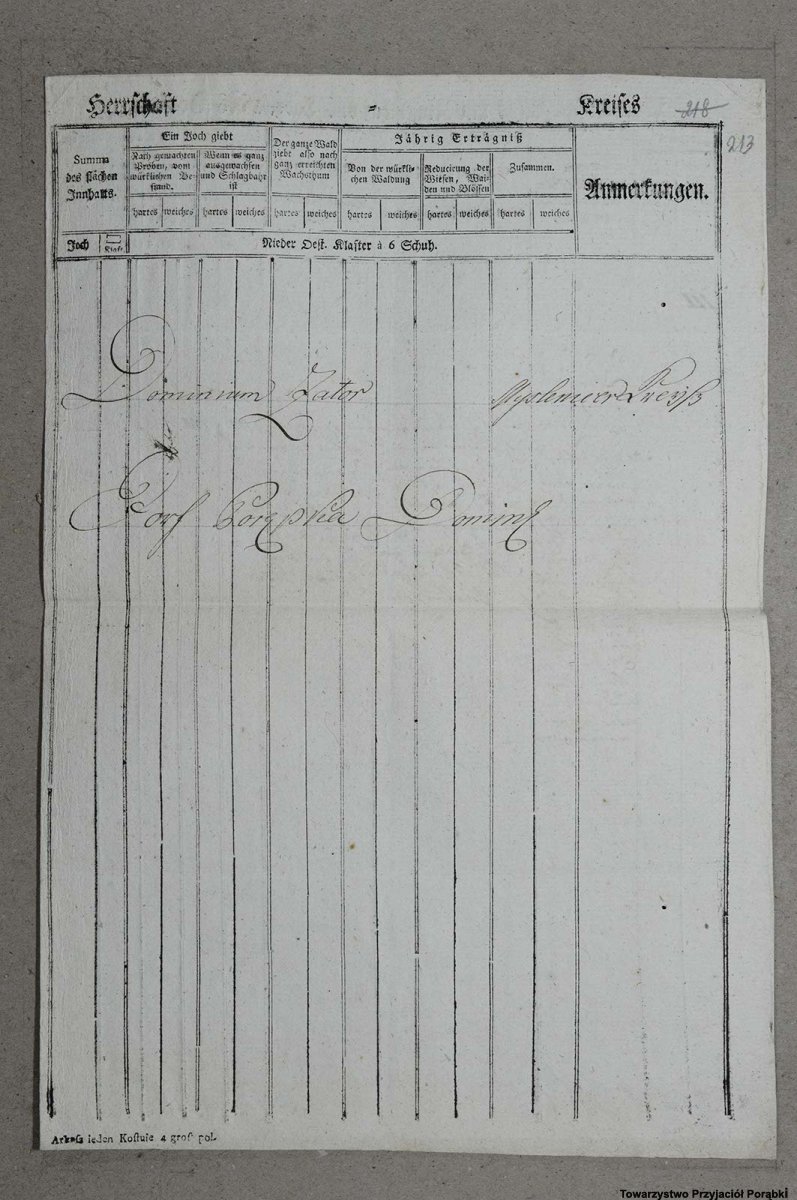 Herrschaft = Kreises 218
213
Summa des flächen Innhalts.
Ein Joch giebt
Der ganze Wald giebt also nach ganz erreichten Wachsthum
Jährig Erträgniß
Anmerkungen.
Nach gemachten Proben, vom würklichen Bestand.
Wenn es ganz ausgewachsen und Schlagbahr ist
Von der würklichen Waldung
Reducirung der Wiesen, Waiden und Blössen
Zusammen.
hartes weiches hartes weiches hartes weiches hartes weiches hartes weiches hartes weiches
Joch Klaft
Nieder Oest. Klafter à 6 Schuh.
Dominium Zator
Dorf Porąpka Domin
Arkusz ieden Kosztuie 4 grosz pol.
Towarzystwo Przyjaciół Porąbki